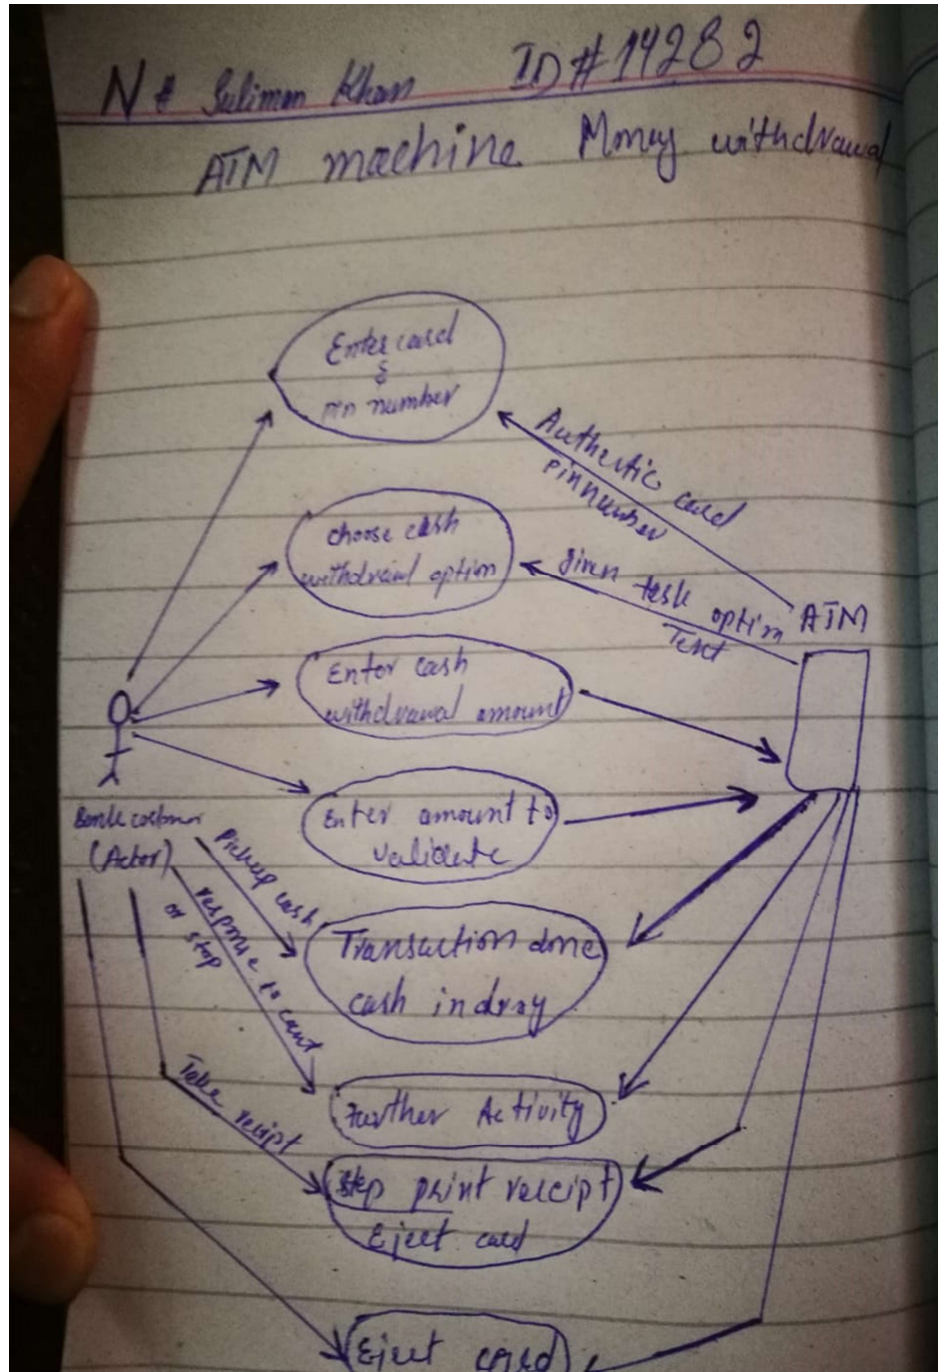 N # Suliman Khan ID # 14282
ATM machine Money withdrawal
Enter card
&
Pin number
Authentic card
Pin number
choose cash
withdrawal option
given task option
Text
ATM
Enter cash
withdrawal amount
Enter amount to
validate
Bank costmer
(Actor)
Pickup cash
response to cont
or stop
Transaction done
cash in dray
Further Activity
Take recipt
Step print reecipt
Eject card
Eject card